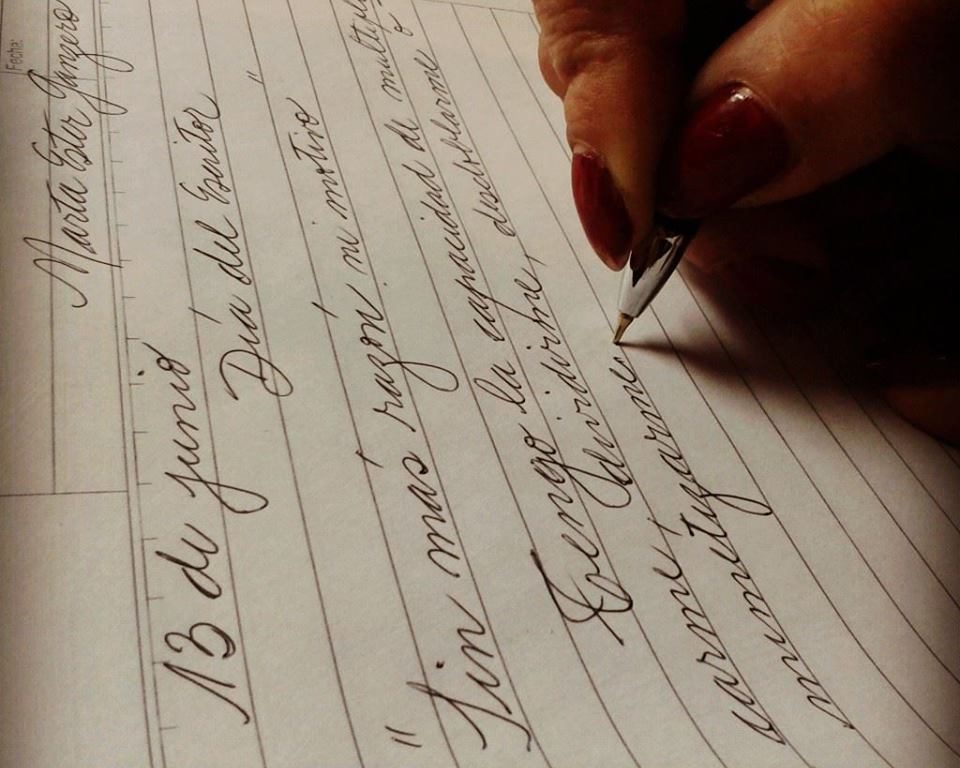 Fecha:
Marta Ester
13 de junio
Día del Escritor
"Sin más razón ni motivo"
Tengo la capacidad de multipli
carme, dividirme, desdoblarme o
mimetizarme